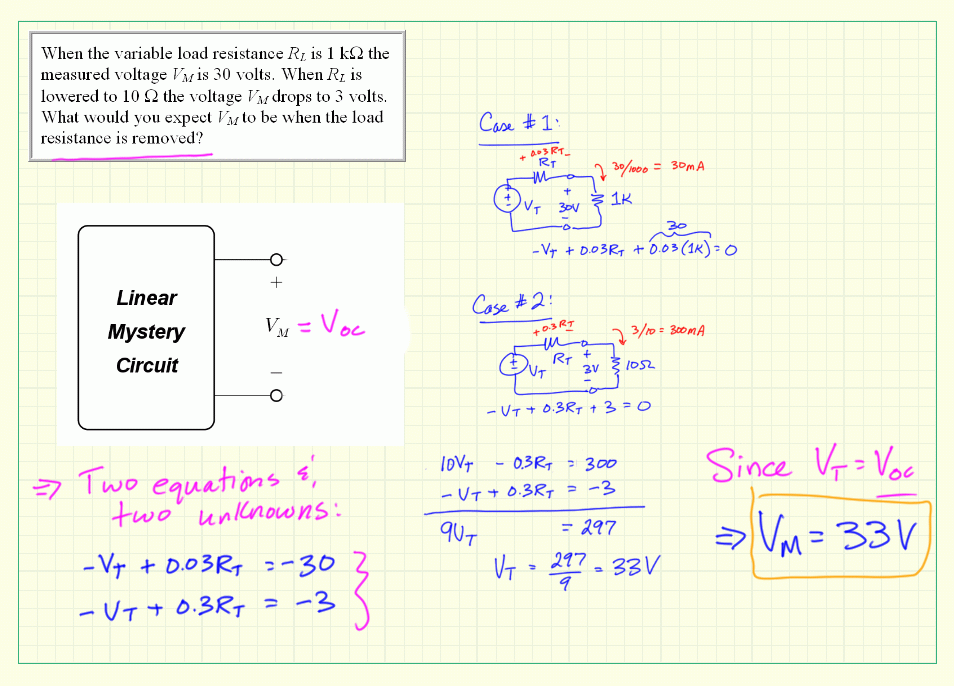 When the variable load resistance R_L is 1 kΩ the
measured voltage V_M is 30 volts. When R_L is
lowered to 10 Ω the voltage V_M drops to 3 volts.
What would you expect V_M to be when the load
resistance is removed?
Linear
Mystery
Circuit
+
V_M = V_OC
−
Case # 1:
+ 0.03 R_T −
R_T
30/1000 = 30mA
+
−
V_T
+
30V
−
1K
30
-V_T + 0.03R_T + 0.03(1K) = 0
Case # 2:
+ 0.3 R_T −
3/10 = 300mA
R_T
+
−
V_T
+
3V
−
10Ω
-V_T + 0.3R_T + 3 = 0
⇒ Two equations &
two unknowns:
-V_T + 0.03R_T = -30
-V_T + 0.3R_T = -3
10V_T - 0.3R_T = 300
-V_T + 0.3R_T = -3
9V_T = 297
V_T = 297/9 = 33V
Since V_T = V_OC
⇒ V_M = 33V